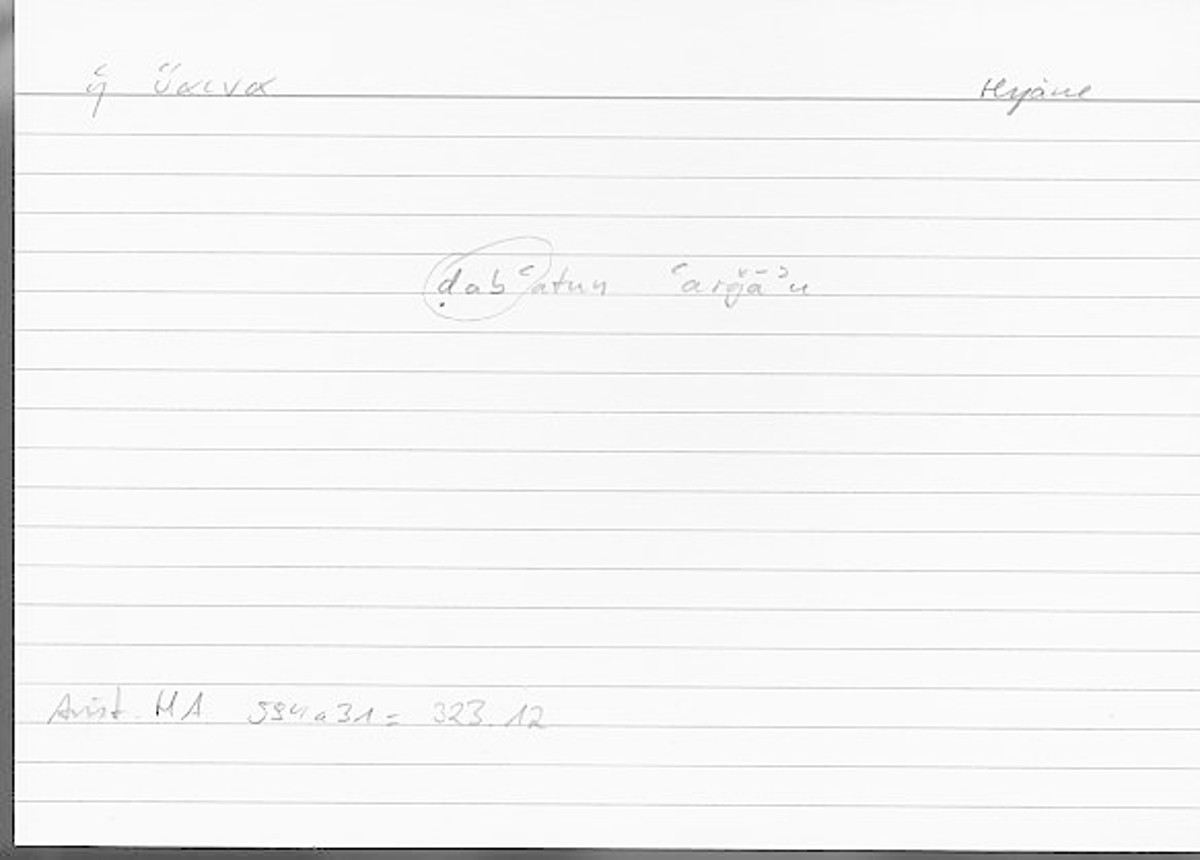 ἡ ὕαινα Hyäne
ḍabʿatun ʿarǧāʾu
Arist. HA 594a31 = 323.12